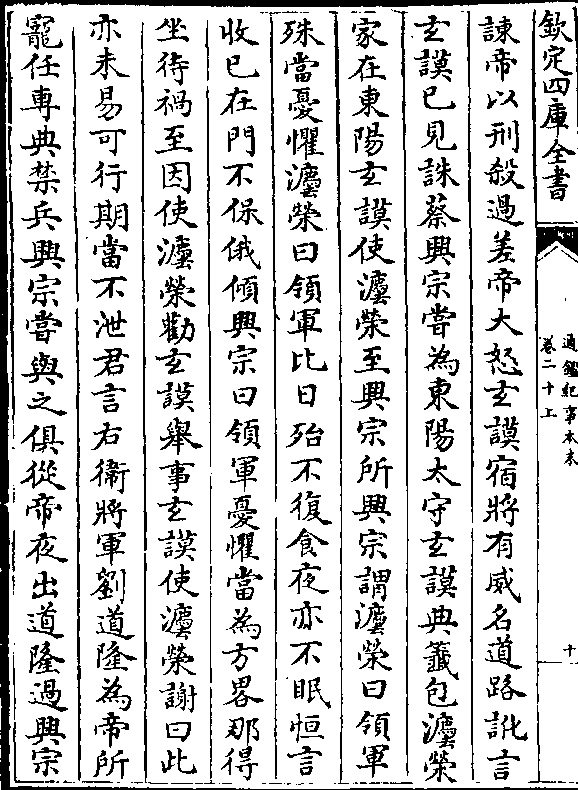 欽定四庫全書
通鑑紀事本末
卷二十上
十
諫帝以刑殺過差帝大怒玄謨宿將有威名道路訛言
玄謨已見誅蔡興宗嘗為東陽太守玄謨典籤包灋榮
家在東陽玄謨使灋榮至興宗所興宗謂灋榮曰領軍
殊當憂懼灋榮曰領軍比日殆不復食夜亦不眠恒言
收已在門不保俄傾興宗曰領軍憂懼當為方畧那得
坐待禍至因使灋榮勸玄謨舉事玄謨使灋榮謝曰此
亦未易可行期當不泄君言右衞將軍劉道隆為帝所
寵任専典禁兵興宗嘗與之俱從帝夜出道隆過興宗